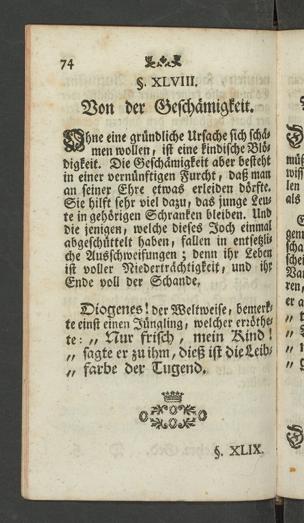 74
§. XLVIII.
Von der Geschämigkeit.
Ohne eine gründliche Ursache sich schä-
men wollen, ist eine kindische Blö-
digkeit. Die Geschämigkeit aber besteht
in einer vernünftigen Furcht, daß man
an seiner Ehre etwas erleiden dörfte.
Sie hilft sehr viel dazu, das junge Leu-
te in gehörigen Schranken bleiben. Und
die jenigen, welche dieses Joch einmal
abgeschüttelt haben, fallen in entsetzli-
che Ausschweifungen; denn ihr Leben
ist voller Niederträchtigkeit, und ihr
Ende voll der Schande.
Diogenes! der Weltweise, bemerk-
te einst einen Jüngling, welcher erröthe-
te: „Nur frisch, mein Kind!
„ sagte er zu ihm, dieß ist die Leib-
„ farbe der Tugend.
§. XLIX.